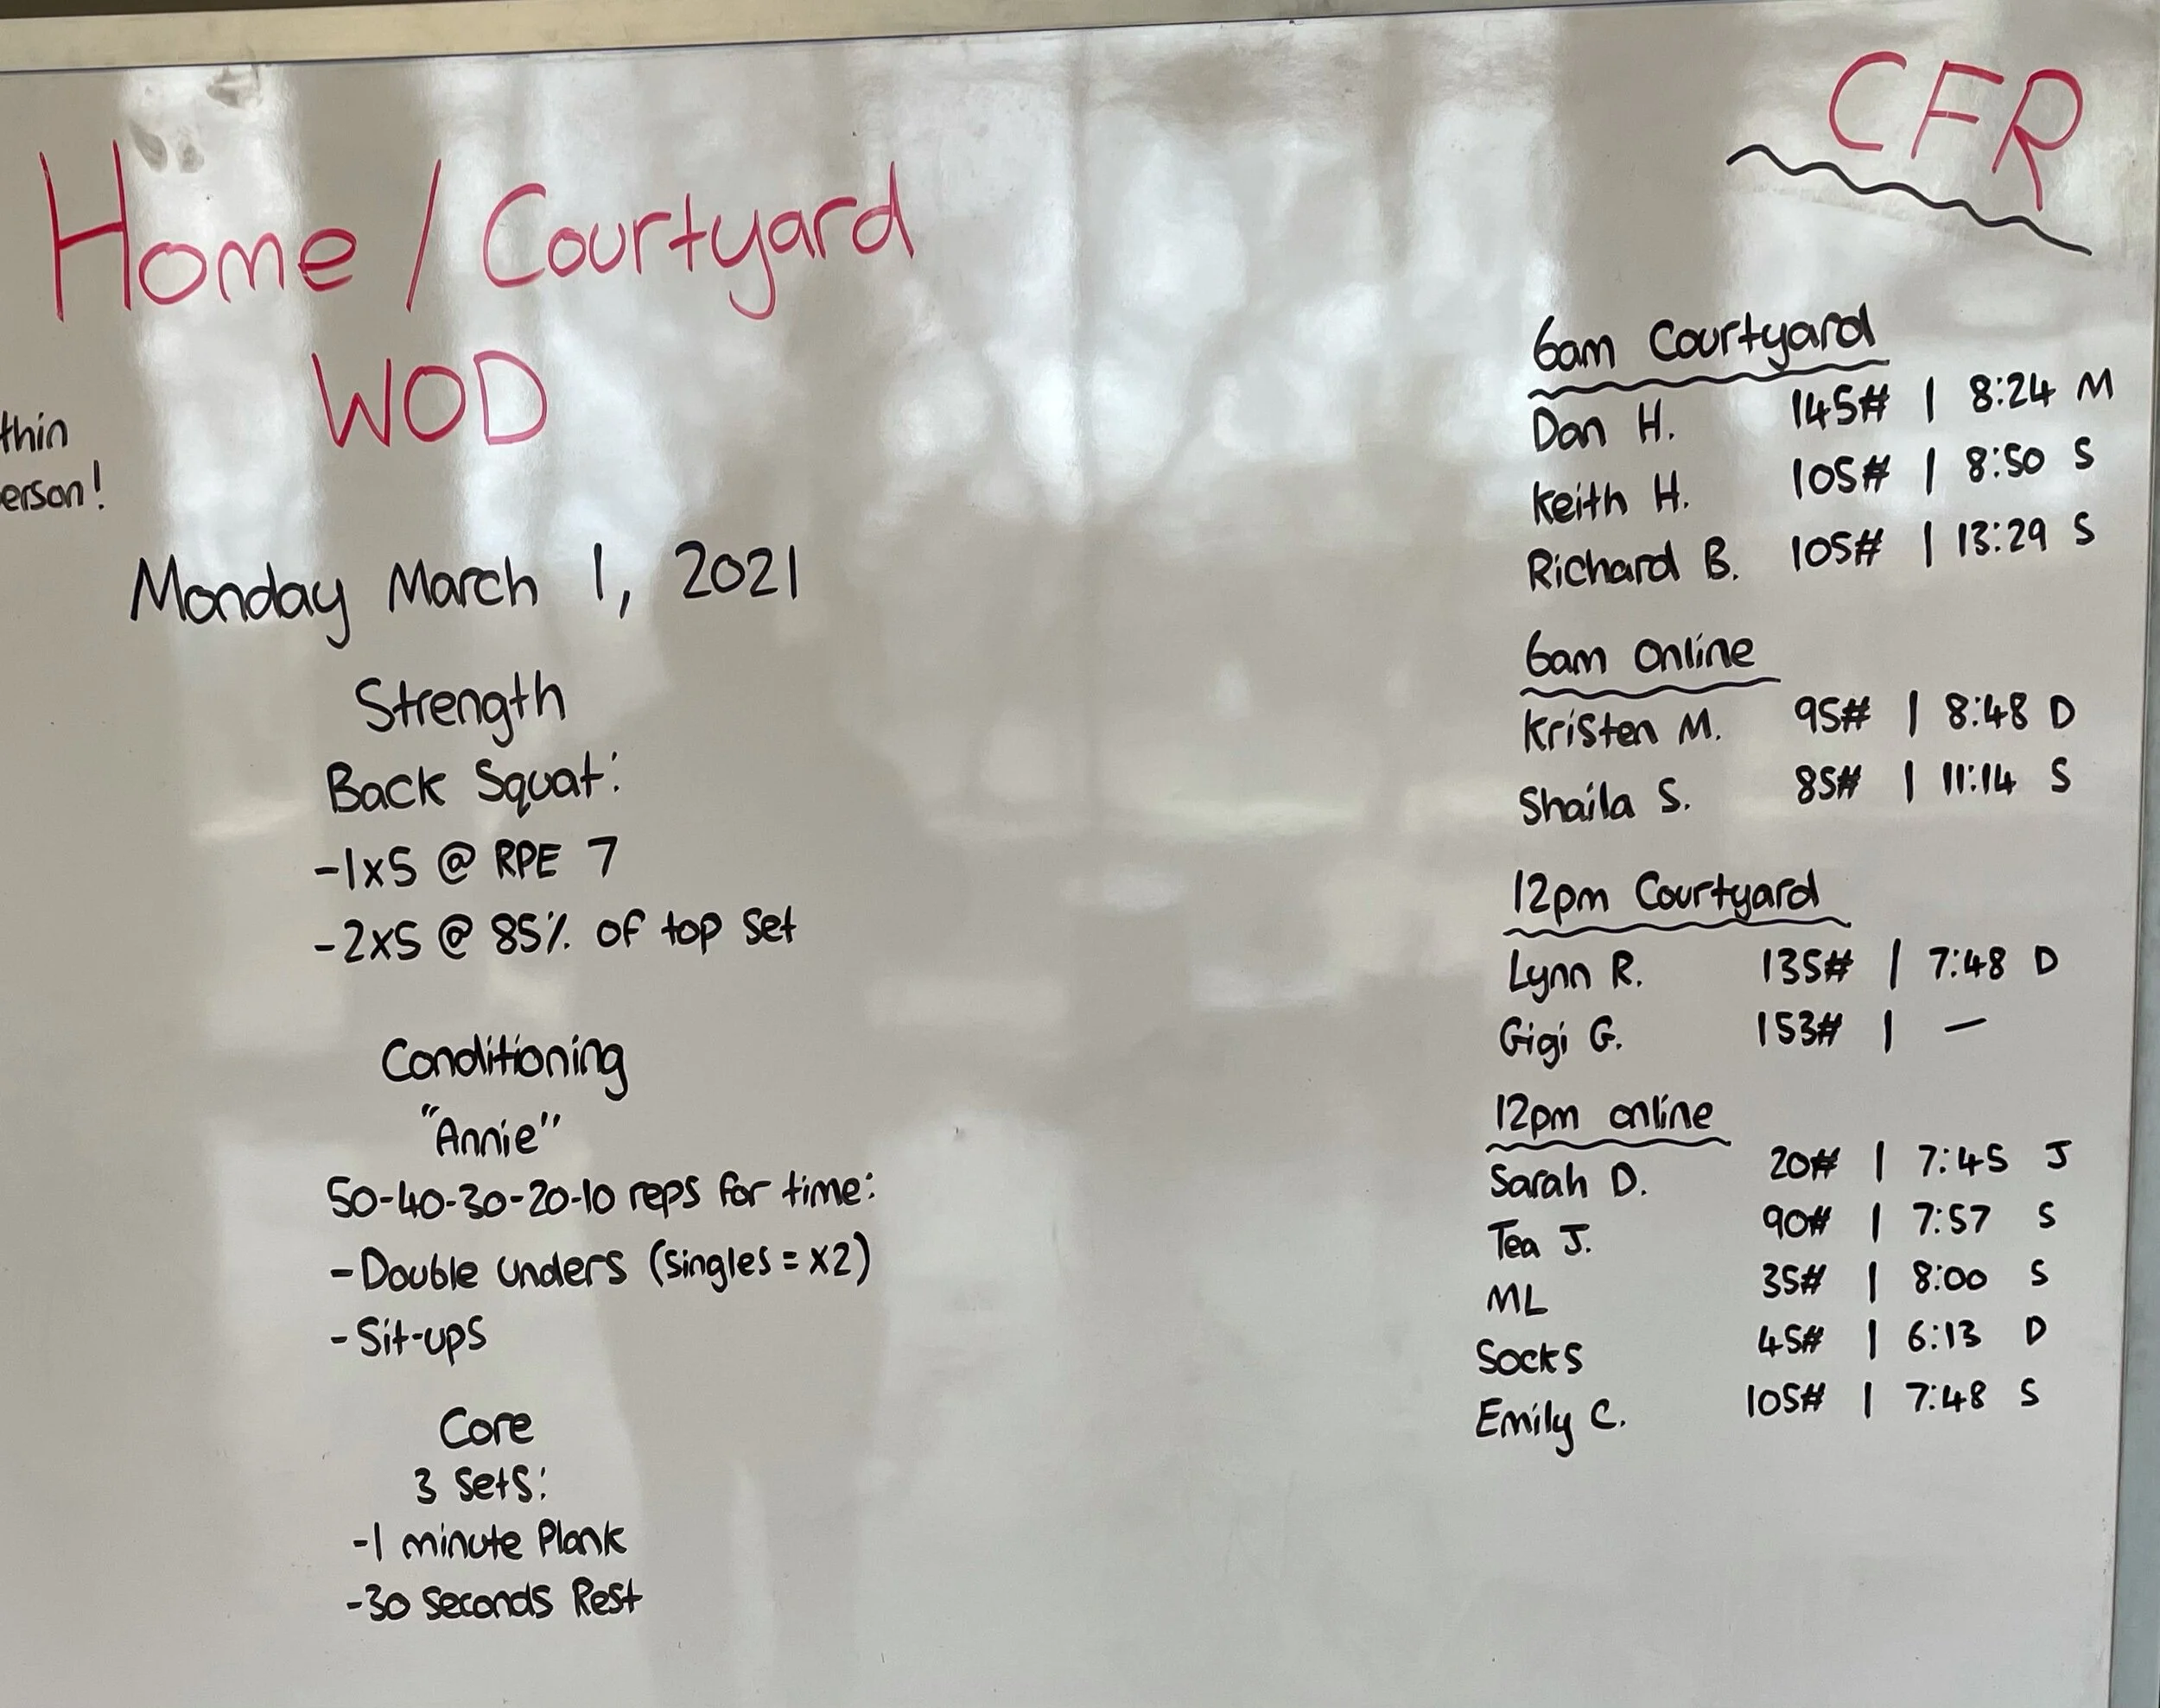 Home / Courtyard
WOD
thin
erson!
Monday March 1, 2021
Strength
Back Squat:
-1x5 @ RPE 7
-2x5 @ 85% of top set
Conditioning
"Annie"
50-40-30-20-10 reps for time:
-Double unders (singles = x2)
-Sit-ups
Core
3 sets:
-1 minute Plank
-30 seconds Rest
CFR
6am Courtyard
Dan H. 145# | 8:24 M
Keith H. 105# | 8:50 S
Richard B. 105# | 13:29 S
6am Online
Kristen M. 95# | 8:48 D
Shaila S. 85# | 11:14 S
12pm Courtyard
Lynn R. 135# | 7:48 D
Gigi G. 153# | —
12pm online
Sarah D. 20# | 7:45 J
Tea J. 90# | 7:57 S
ML 35# | 8:00 S
Socks 45# | 6:13 D
Emily C. 105# | 7:48 S